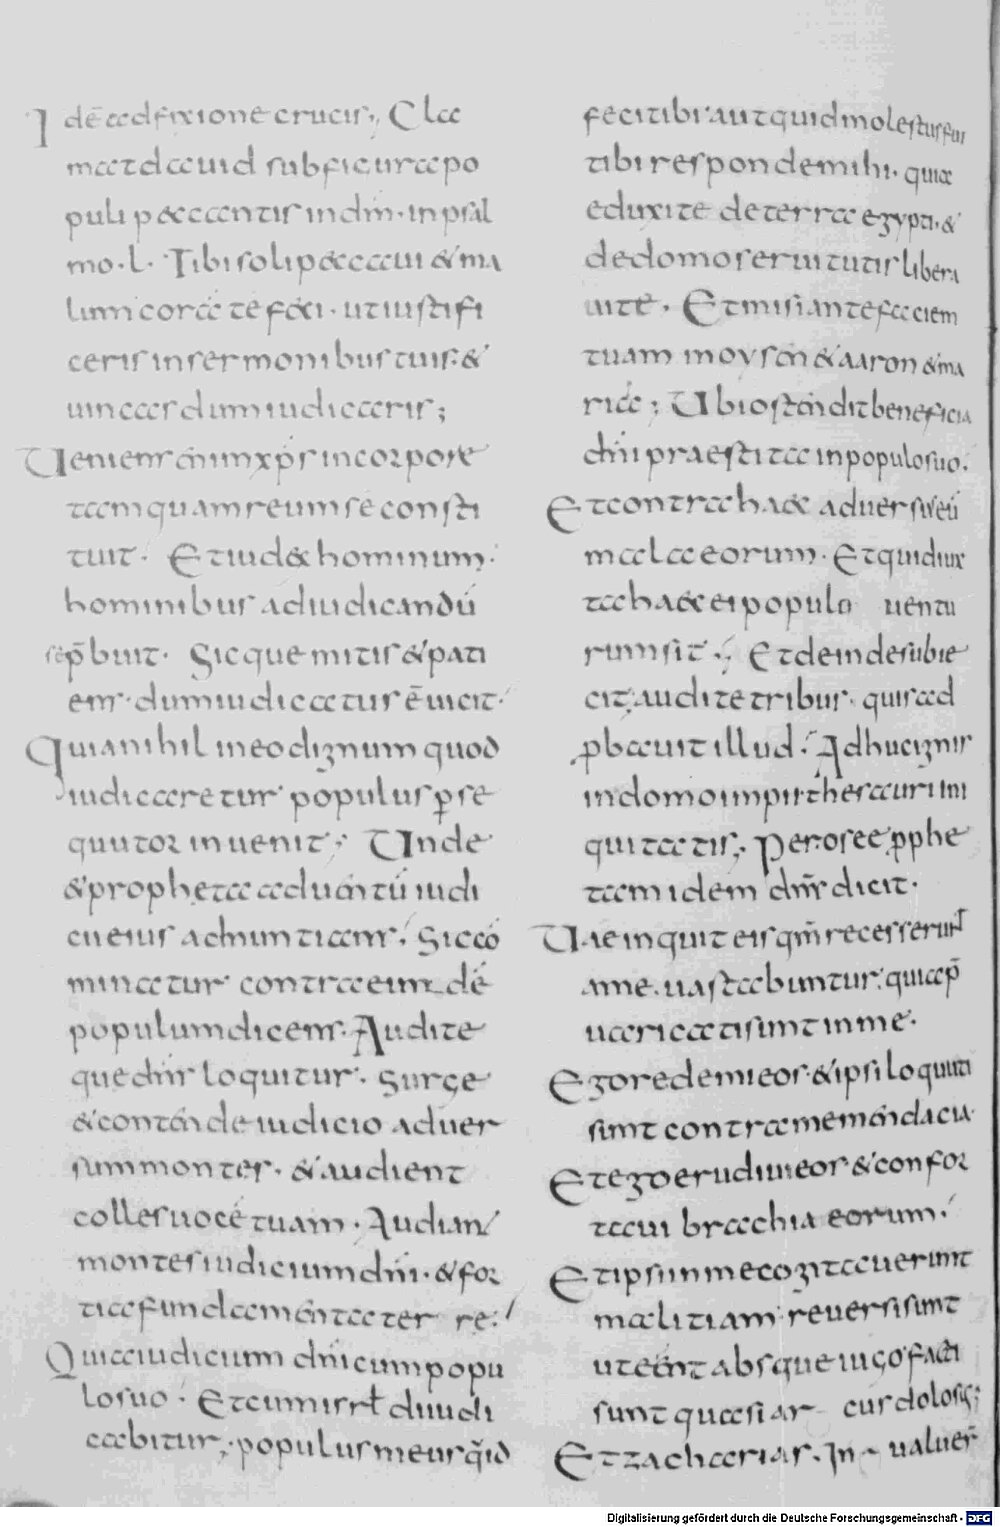 Idē adfixione crucis; Cla
mat dauid sub figura po
puli peccantis in dm̄. in psal
mo. l. Tibi soli peccaui & ma
lum coram te feci. ut iustifi
ceris in sermonibus tuis. &
uincas dum iudicaris;
Ueniens enim xp̄s in corpore
tamquam reum se consti
tuit. Et iudex hominum.
hominibus adiudicandū
se p̄buit. Sicque mitis & pati
ens. dum iudicatus ē uicit.
Quia nihil in eo dignum quod
iudicaretur populus perse
quutor inuenit; Unde
& propheta aduentū iudi
cii eius adnuntians. Sic co
minatur contra eundē
populum dicens. Audite
que dn̄s loquitur. Surge
& contende iudicio aduer
sum montes. & audient
colles uocē tuam. Audiant
montes iudicium dn̄i. & for
tia fundamenta terre.
Quia iudicium dn̄i cum popu
lo suo. Et cum isrt diiudi
cabitur; populus meus quid
feci tibi. aut quid molestus fui
tibi responde mihi. quia
eduxi te de terra egypti. &
de domo seruitutis libera
ui te. Et misi ante faciem
tuam moysen & aaron & ma
ria; Ubi ostendit beneficia
dn̄i praestita in populo suo.
Et contra haec aduersus eū
mala eorum. Et quid iux
ta haec ei populo uentu
rum sit; Et deinde subie
cit. audite tribus. quis ad
p̄bauit illud. Adhuc ignis
in domo impii thesauri ini
quitatis; Per osee p̄phe
tam idem dn̄s dicit.
Uae inquit eis qm̄ recesserunt
a me. uastabuntur. quia p̄
uaricati sunt in me.
Ego redemi eos. & ipsi loquuti
sunt contra me mendacia.
Et ego erudiui eos & confor
taui brachia eorum.
Et ipsi in me cogitauerunt
malitiam. reuersi sunt
ut eēnt absque iugo. facti
sunt quasi arcus dolosus;
Et zacharias. In ualuer̄